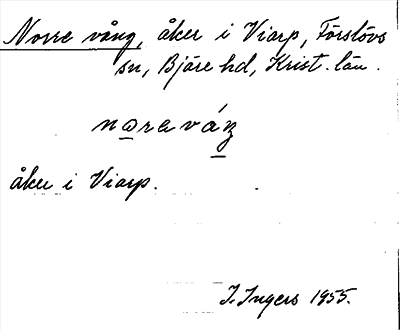 Norre vång, åker i Viarp, Förslövs
sn, Bjäre hd, Krist. län.
åker i Viarp.
I. Ingers 1955.